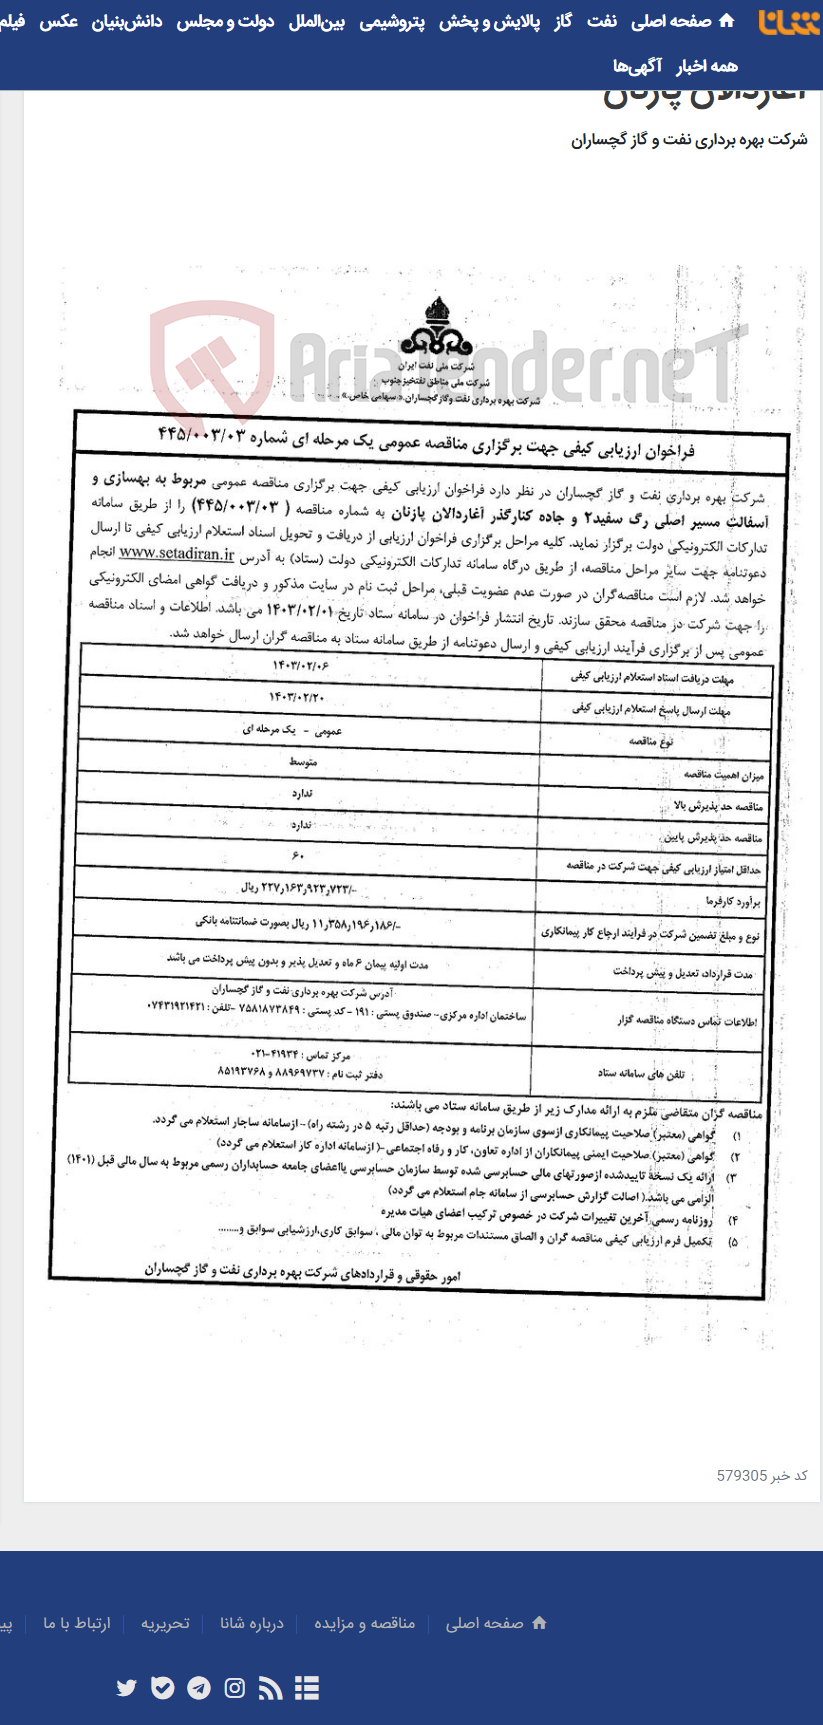 شانا
صفحه اصلی نفت گاز پالایش و پخش پتروشیمی بین‌الملل دولت و مجلس دانش‌بنیان عکس فیلم
همه اخبار آگهی‌ها
آغاردالان پازنان
شرکت بهره برداری نفت و گاز گچساران
AriaTender.neT
شرکت ملی نفت ایران
شرکت ملی مناطق نفتخیز جنوب
شرکت بهره برداری نفت و گاز گچساران « سهامی خاص »
فراخوان ارزیابی کیفی جهت برگزاری مناقصه عمومی یک مرحله ای شماره ۴۴۵/۰۰۳/۰۳
شرکت بهره برداری نفت و گاز گچساران در نظر دارد فراخوان ارزیابی کیفی جهت برگزاری مناقصه عمومی مربوط به بهسازی و
آسفالت مسیر اصلی رگ سفید۲ و جاده کنارگذر آغاردالان پازنان به شماره مناقصه ( ۴۴۵/۰۰۳/۰۳) را از طریق سامانه
تدارکات الکترونیکی دولت برگزار نماید. کلیه مراحل برگزاری فراخوان ارزیابی از دریافت و تحویل اسناد استعلام ارزیابی کیفی تا ارسال
دعوتنامه جهت سایر مراحل مناقصه، از طریق درگاه سامانه تدارکات الکترونیکی دولت (ستاد) به آدرس www.setadiran.ir انجام
خواهد شد. لازم است مناقصه‌گران در صورت عدم عضویت قبلی، مراحل ثبت نام در سایت مذکور و دریافت گواهی امضای الکترونیکی
را جهت شرکت در مناقصه محقق سازند. تاریخ انتشار فراخوان در سامانه ستاد تاریخ ۱۴۰۳/۰۲/۰۱ می باشد. اطلاعات و اسناد مناقصه
عمومی پس از برگزاری فرآیند ارزیابی کیفی و ارسال دعوتنامه از طریق سامانه ستاد به مناقصه گران ارسال خواهد شد.
مهلت دریافت اسناد استعلام ارزیابی کیفی ۱۴۰۳/۰۲/۰۶
مهلت ارسال پاسخ استعلام ارزیابی کیفی ۱۴۰۳/۰۲/۲۰
نوع مناقصه عمومی - یک مرحله ای
میزان اهمیت مناقصه متوسط
مناقصه حد پذیرش بالا ندارد
مناقصه حد پذیرش پایین ندارد
حداقل امتیاز ارزیابی کیفی جهت شرکت در مناقصه ۶۰
برآورد کارفرما ۲۲۷٫۱۶۳٫۹۲۳٫۷۲۳/- ریال
نوع و مبلغ تضمین شرکت در فرآیند ارجاع کار پیمانکاری ۱۱٫۳۵۸٫۱۹۶٫۱۸۶/- ریال بصورت ضمانتنامه بانکی
مدت قرارداد، تعدیل و پیش پرداخت مدت اولیه پیمان ۶ ماه و تعدیل پذیر و بدون پیش پرداخت می باشد
اطلاعات تماس دستگاه مناقصه گزار آدرس شرکت بهره برداری نفت و گاز گچساران
ساختمان اداره مرکزی- صندوق پستی : ۱۹۱ - کد پستی : ۷۵۸۱۸۷۳۸۴۹ -تلفن : ۰۷۴۳۱۹۲۱۴۲۱
تلفن های سامانه ستاد مرکز تماس : ۴۱۹۳۴-۰۲۱
دفتر ثبت نام : ۸۸۹۶۹۷۳۷ و ۸۵۱۹۳۷۶۸
مناقصه گران متقاضی ملزم به ارائه مدارک زیر از طریق سامانه ستاد می باشند:
۱) گواهی (معتبر) صلاحیت پیمانکاری ازسوی سازمان برنامه و بودجه (حداقل رتبه ۵ در رشته راه) - ازسامانه ساجار استعلام می گردد.
۲) گواهی (معتبر) صلاحیت ایمنی پیمانکاران از اداره تعاون، کار و رفاه اجتماعی -( ازسامانه اداره کار استعلام می گردد)
۳) ارائه یک نسخه تاییدشده ازصورتهای مالی حسابرسی شده توسط سازمان حسابرسی یااعضای جامعه حسابداران رسمی مربوط به سال مالی قبل (۱۴۰۱)
الزامی می باشد.( اصالت گزارش حسابرسی از سامانه جام استعلام می گردد)
۴) روزنامه رسمی آخرین تغییرات شرکت در خصوص ترکیب اعضای هیات مدیره
۵) تکمیل فرم ارزیابی کیفی مناقصه گران و الصاق مستندات مربوط به توان مالی ، سوابق کاری،ارزشیابی سوابق و........
امور حقوقی و قراردادهای شرکت بهره برداری نفت و گاز گچساران
کد خبر 579305
صفحه اصلی مناقصه و مزایده درباره شانا تحریریه ارتباط با ما پیو